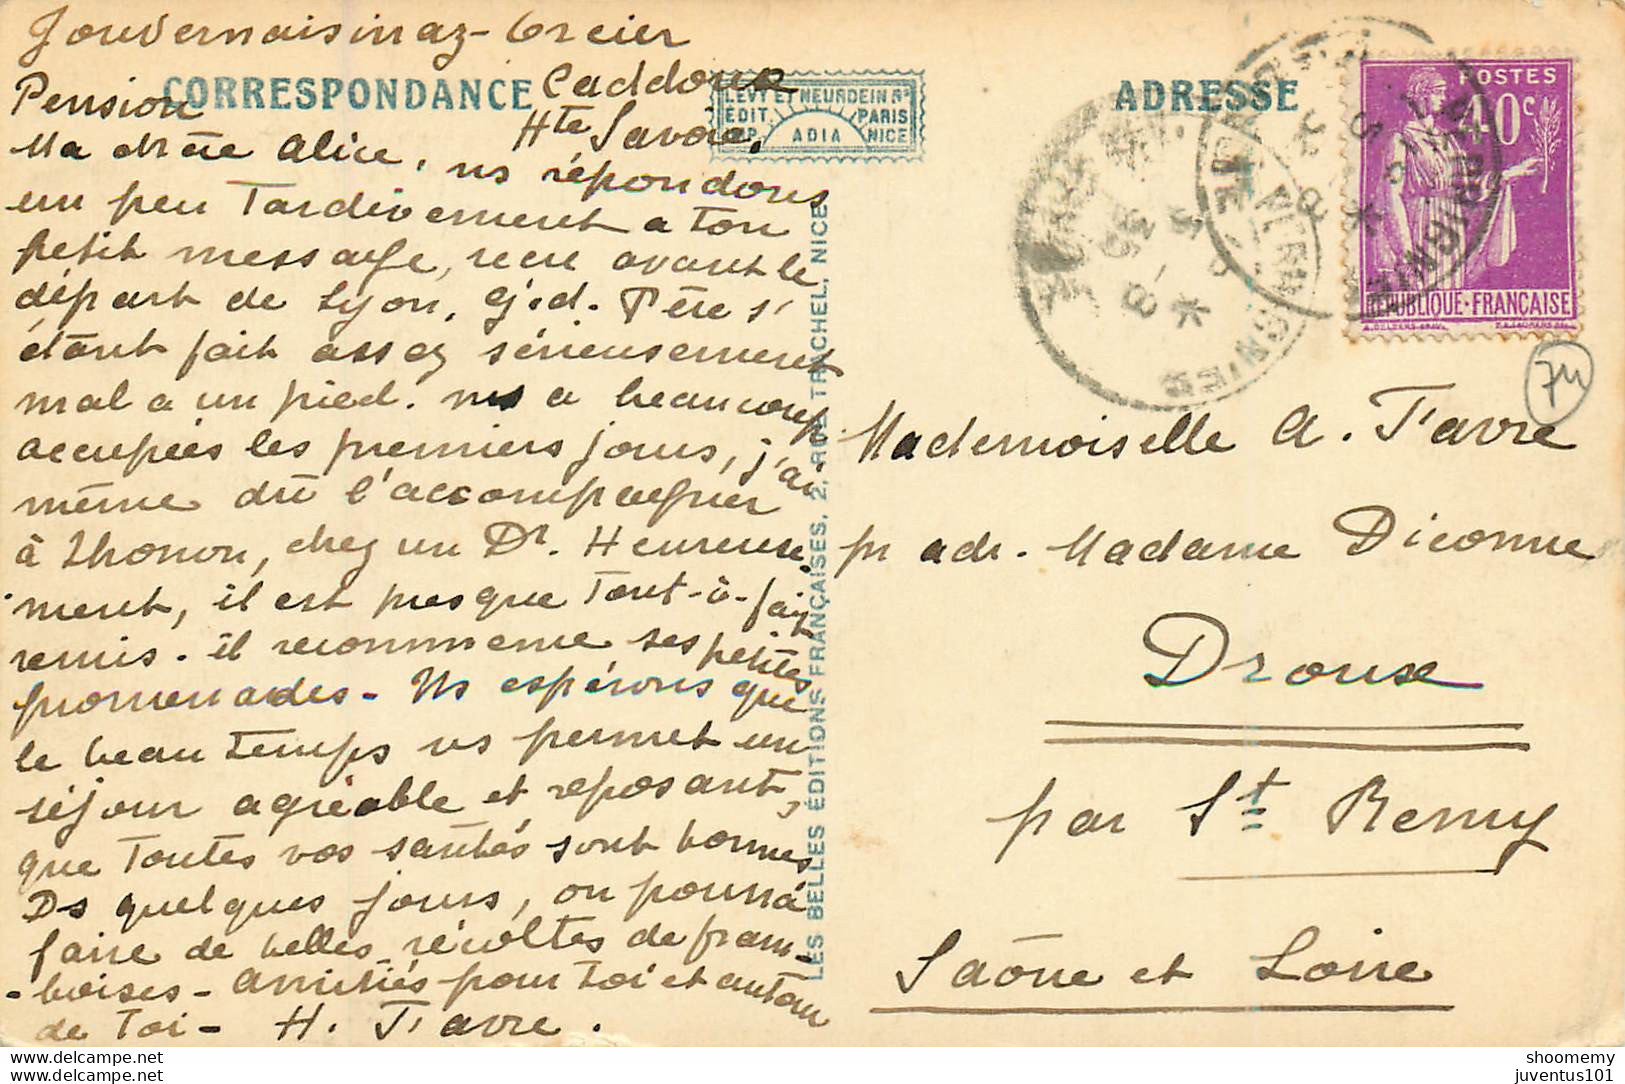 CORRESPONDANCE
Pension
Hte Savoie.
LEVY ET NEURDEIN Rs
EDIT. PARIS
IMP. ADIA NICE
Ma chère Alice, ns répondons
un peu Tardivement a ton
petit message, recu avant le
départ de Lyon, Gd. Père s'
étant fait assez sérieusement
mal a un pied. ns a beaucoup
occupées les premiers jours, j'ai
même dû l'accompagner
à Thonon, chez un Dr. Heureuse
ment, il est presque Tout-à-fait
remis. il recommence ses petites
promenades - Ns espérons que
le beau Temps vs permet un
séjour agréable et reposant,
que Toutes vos santés sont bonnes
Ds quelques jours, on pourra
faire de belles récoltes de fram-
-boises - Amitiés pour Toi et autour
de Toi - H. Favre.
LES BELLES ÉDITIONS FRANÇAISES, 2, RUE TRACHEL, NICE
ADRESSE
POSTES
40c
REPUBLIQUE·FRANÇAISE
74
Mademoiselle A. Favre
pr adr. Madame Diconne
Drouse
par St Remy
Saône et Loire
shoomemy
juventus101